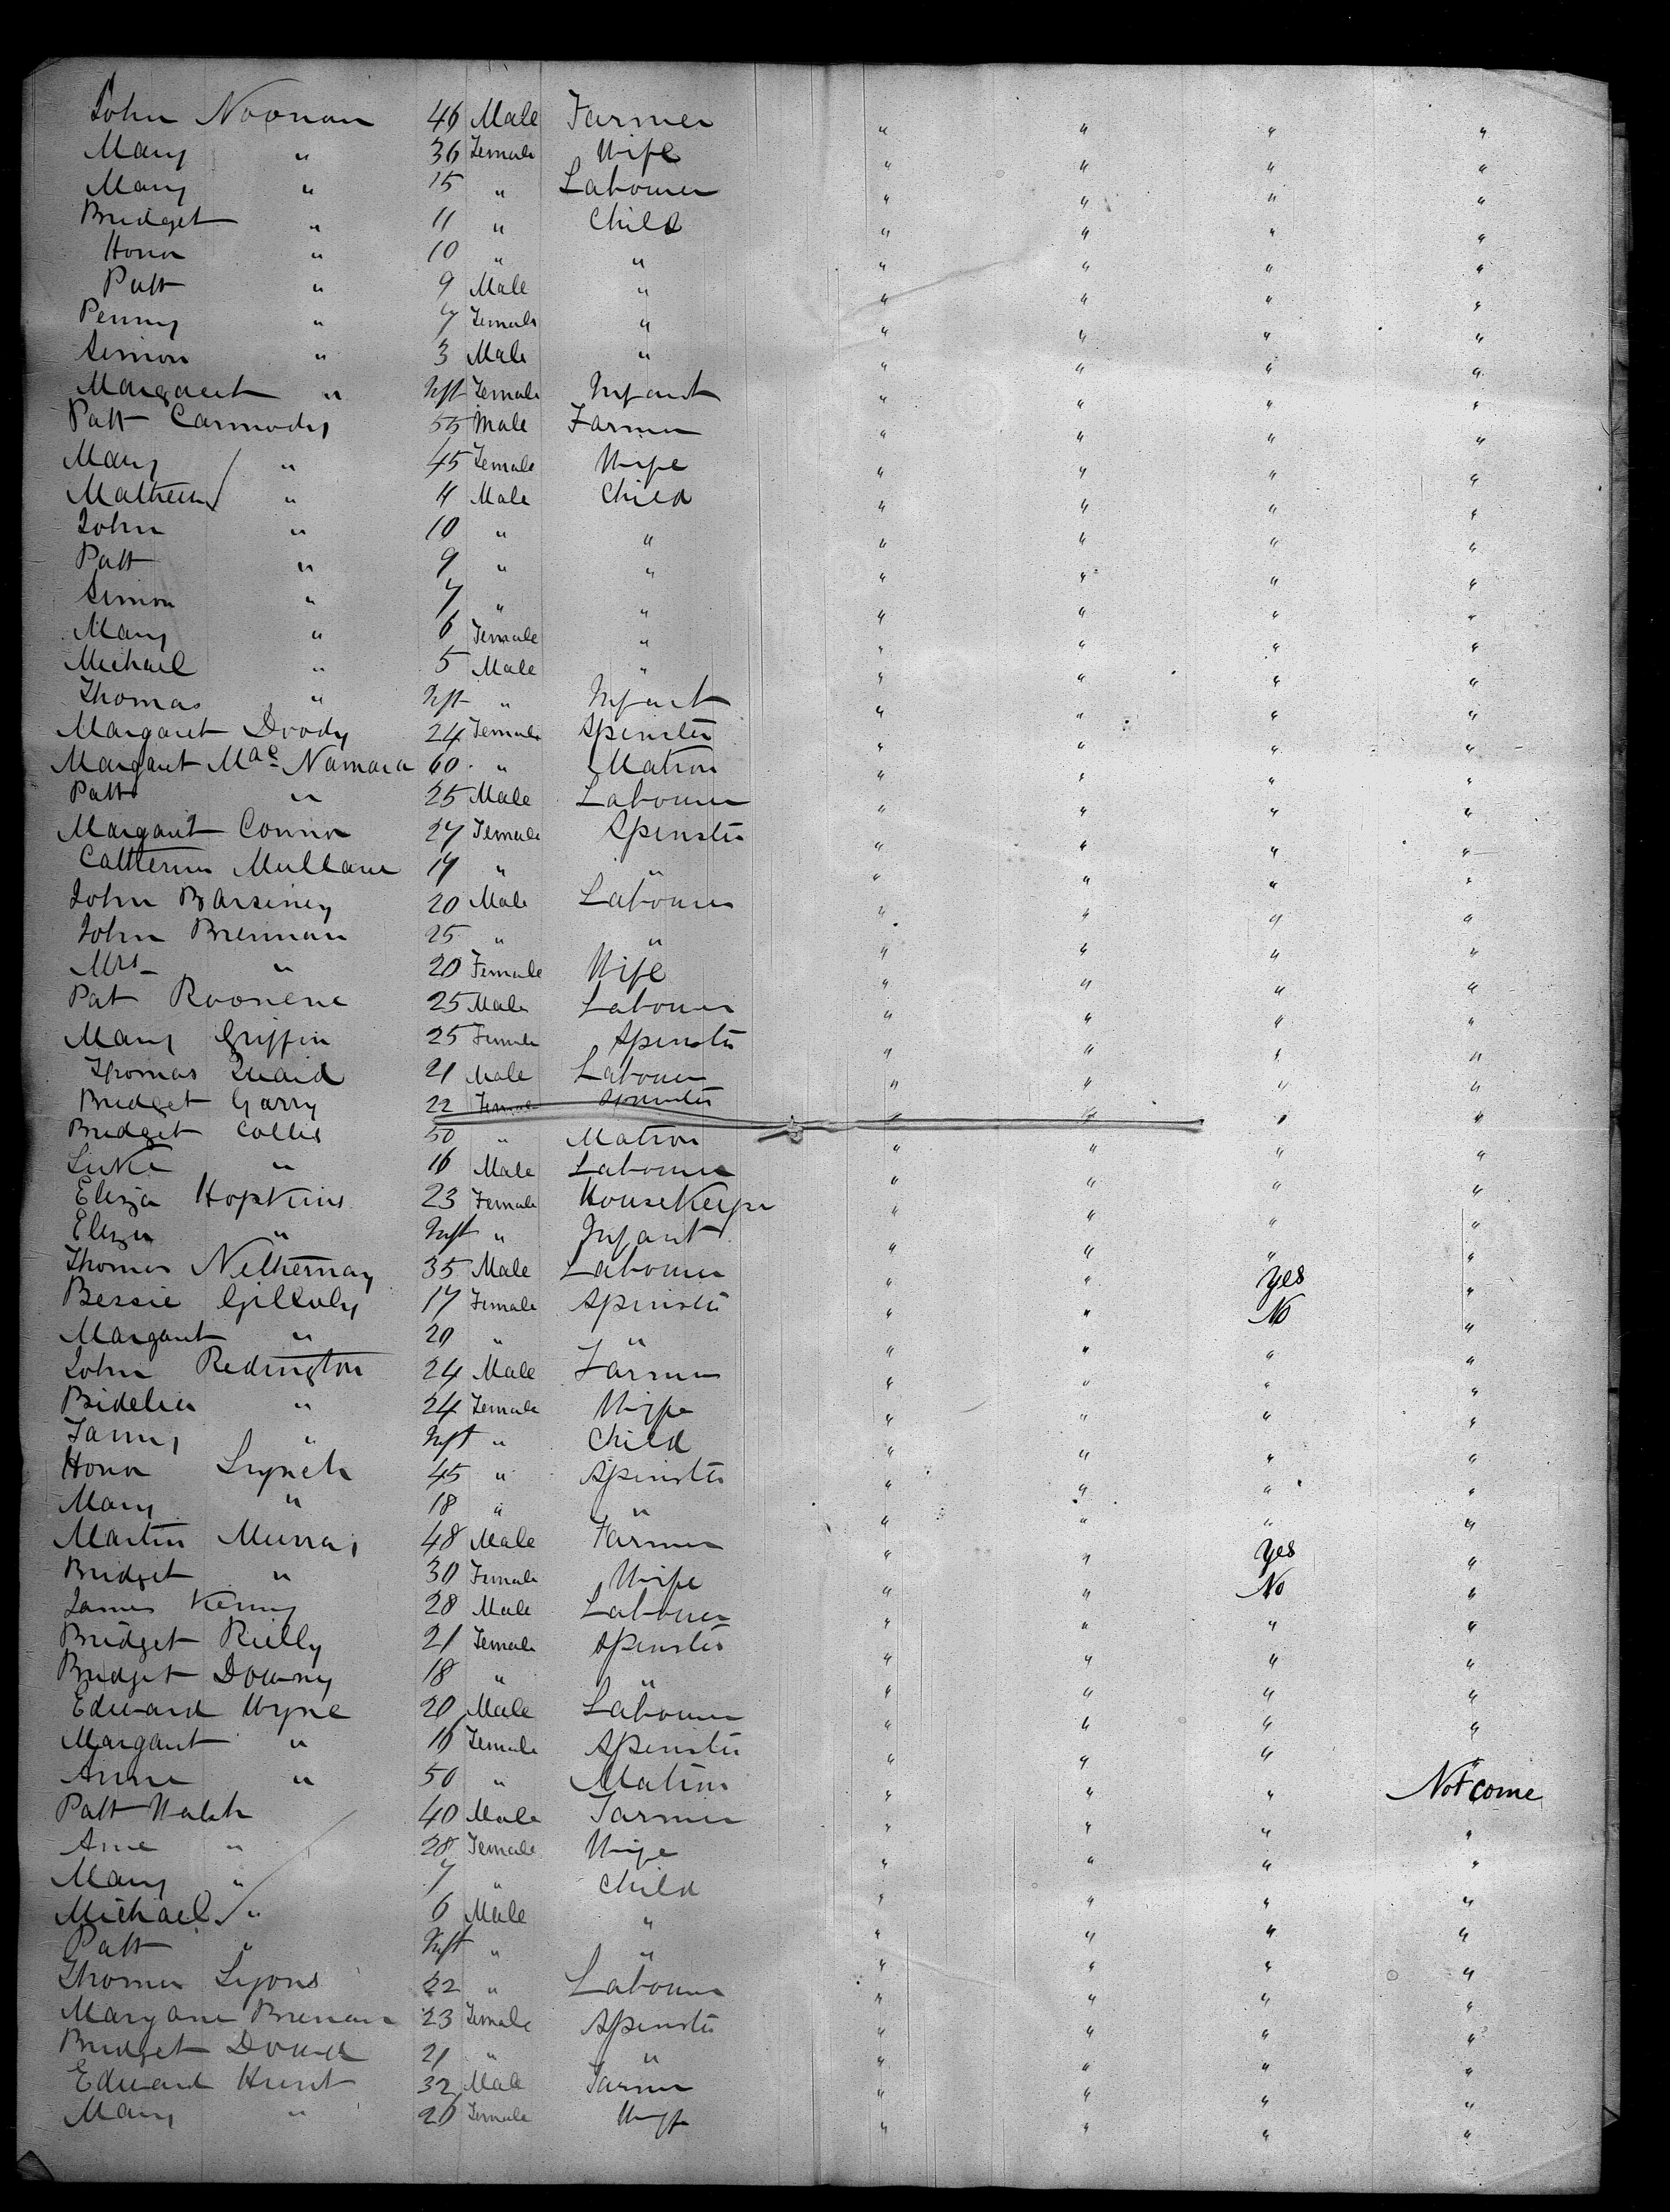 John Noonan 46 Male Farmer " " " "
Mary " 36 Female Wife " " " "
Mary " 15 " Labourer " " " "
Bridget " 11 " Child " " " "
Honor " 10 " " " " " "
Patt " 9 Male " " " " "
Penny " 7 Female " " " " "
Simon " 3 Male " " " " "
Margaret " Inft Female Infant " " " "
Patt Carmody 55 Male Farmer " " " "
Mary " 45 Female Wife " " " "
Mathew " 11 Male Child " " " "
John " 10 " " " " " "
Patt " 9 " " " " " "
Simon " 7 " " " " " "
Mary " 6 Female " " " " "
Michael " 5 Male " " " " "
Thomas " Inft " Infant " " " "
Margaret Doody 24 Female Spinster " " " "
Margaret Mac Namara 60 " Matron " " " "
Patt " 25 Male Labourer " " " "
Margaret Connor 27 Female Spinster " " " "
Catherine Mullane 17 " " " " " "
John Barsiney 20 Male Labourer " " " "
John Brennan 25 " " " " " "
Mrs " 20 Female Wife " " " "
Pat Roonene 25 Male Labourer " " " "
Mary Griffin 25 Female Spinster " " " "
Thomas Quaid 21 Male Labourer " " " "
Bridget Garry 22 Female Spinster " " " "
Bridget Colles 50 " Matron " " " "
Luke " 16 Male Labourer " " " "
Eliza Hopkins 23 Female HouseKeeper " " " "
Eliza " Inft " Infant " " " "
Thomas Nethernay 35 Male Labourer " " Yes "
Bessie Gillooly 17 Female Spinster " " No "
Margaret " 20 " " " " " "
John Redington 24 Male Farmer " " " "
Bidelia " 24 Female Wife " " " "
Fanny " Inft " Child " " " "
Honor Lynch 45 " Spinster " " " "
Mary " 18 " " " " " "
Martin Murray 48 Male Farmer " " Yes "
Bridget " 30 Female Wife " " No "
James Kenny 28 Male Labourer " " " "
Bridget Rielly 21 Female Spinster " " " "
Bridget Downey 18 " " " " " "
Edward Wyne 20 Male Labourer " " " "
Margaret " 16 Female Spinster " " " "
Anne " 50 " Matron " " " Not come
Patt Walsh 40 Male Farmer " " " "
Ane " 28 Female Wife " " " "
Mary " 7 " Child " " " "
Michael " 6 Male " " " " "
Patt " Inft " " " " " "
Thomas Lyons 22 " Labourer " " " "
Mary ane Brenan 23 Female Spinster " " " "
Bridget Doud 21 " " " " " "
Edward Hunt 32 Male Farmer " " " "
Mary " 20 Female Wife " " " "